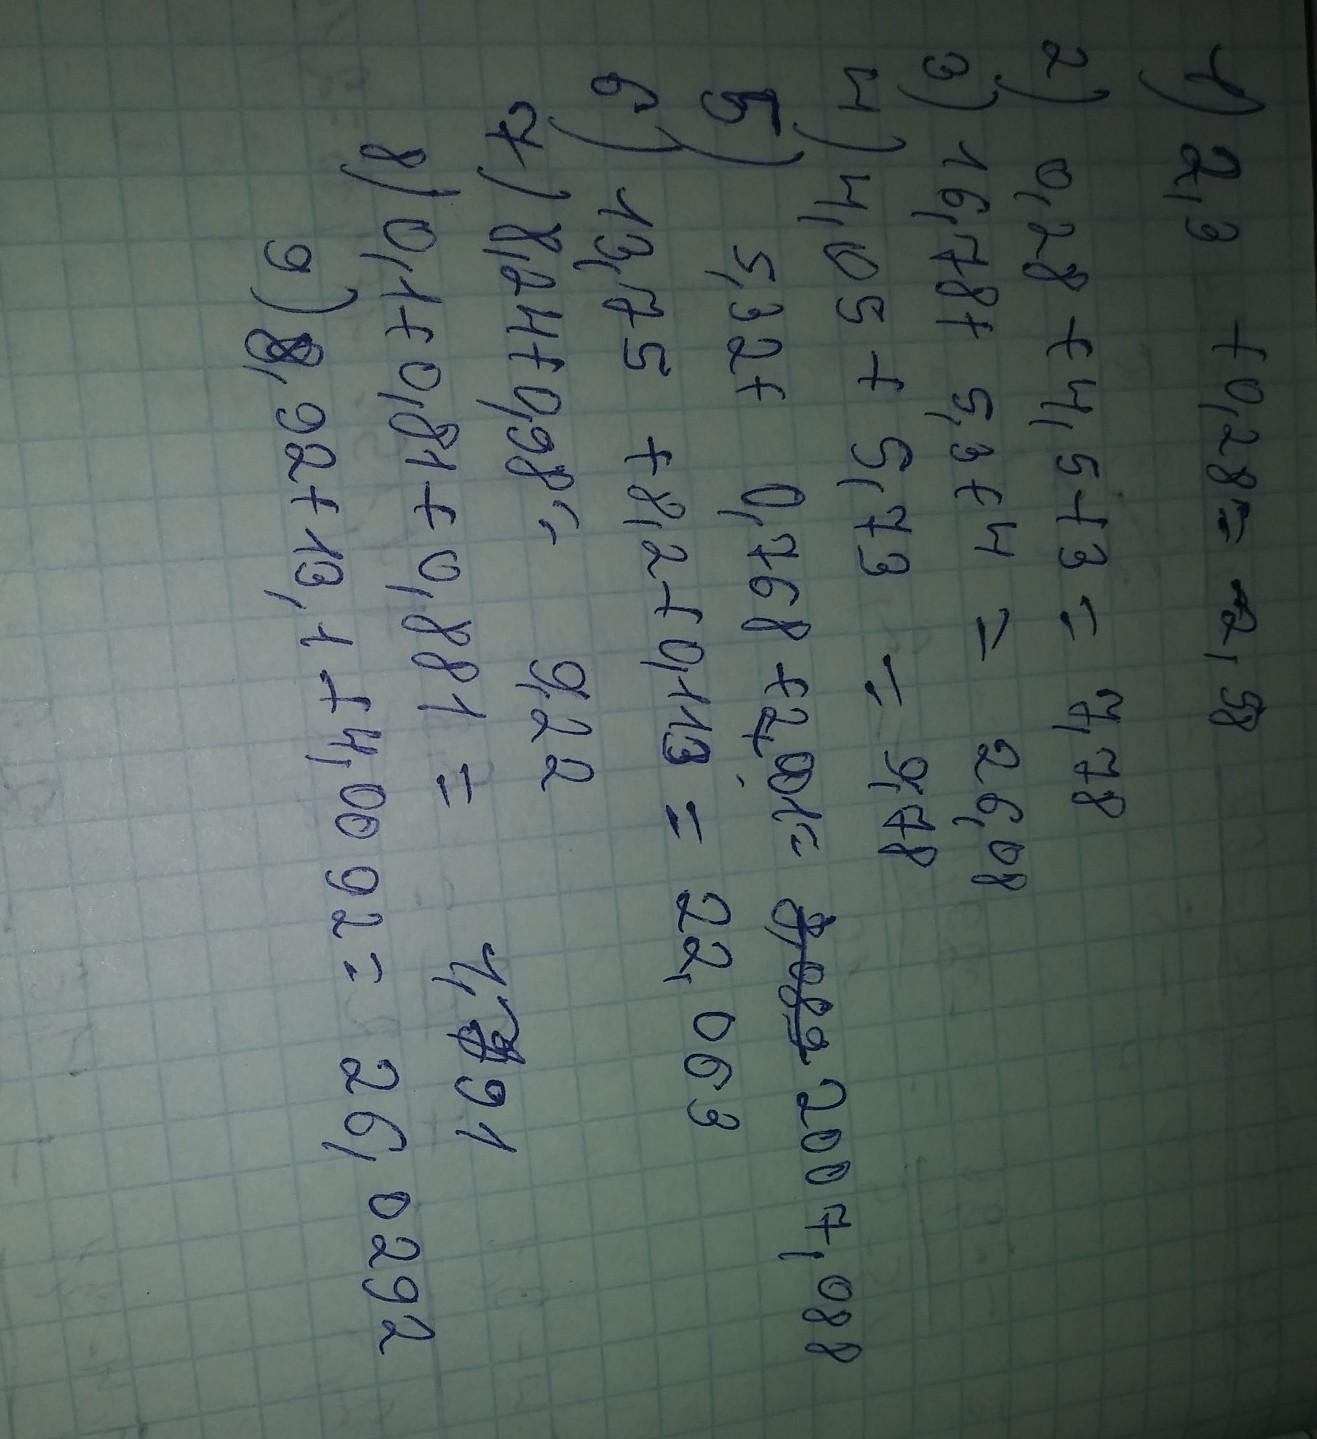 1) 2,3 + 0,28 = 2,58
2) 0,28 + 4,5 + 3 = 7,78
3) 16,78 + 5,3 + 4 = 26,08
4) 4,05 + 5,73 = 9,78
5) 5,32 + 0,768 + 2001 = 2007,088
6) 13,75 + 8,2 + 0,113 = 22,063
7) 8,24 + 0,98 = 9,22
8) 0,1 + 0,81 + 0,881 = 1,791
9) 8,92 + 13,1 + 4,0092 = 26,0292